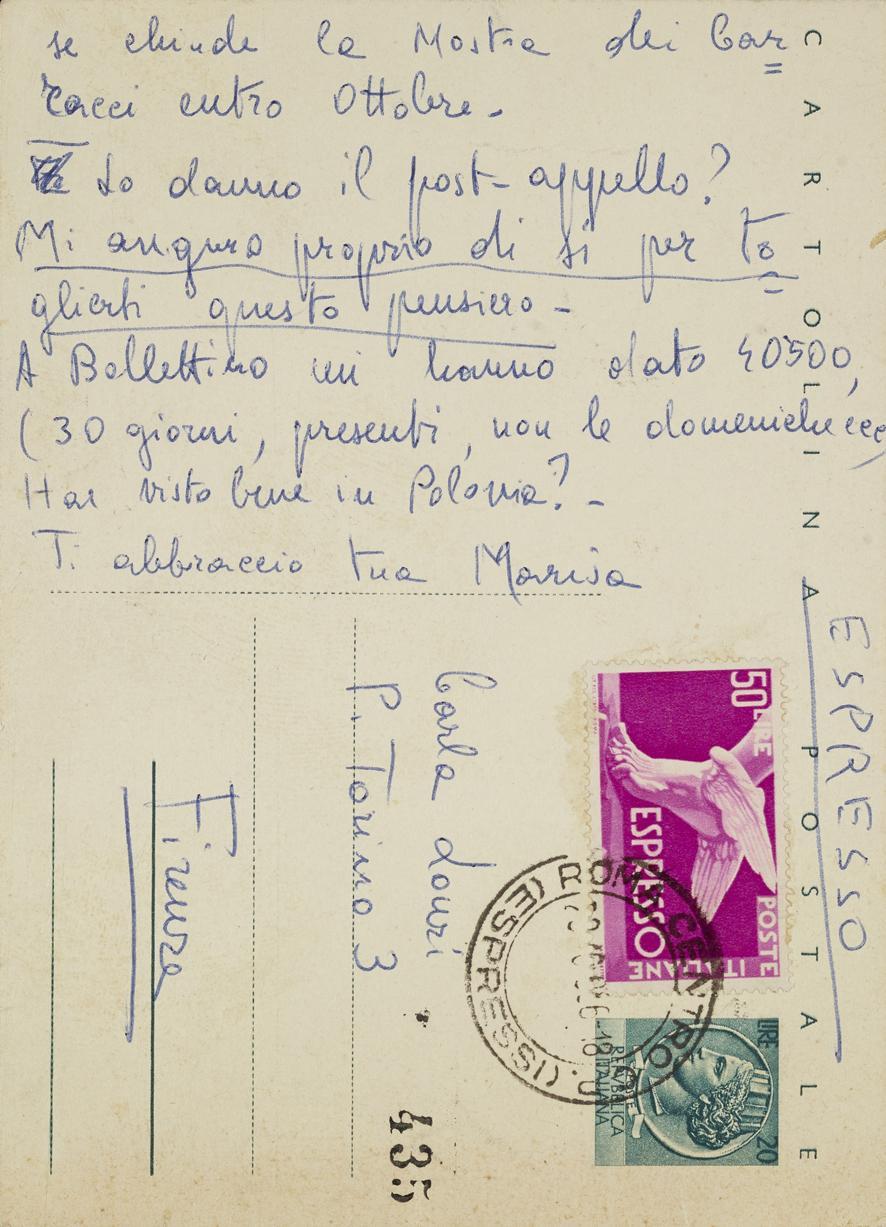 se chiude la Mostra dei Car=
racci entro Ottobre-
Lo danno il post-appello?
Mi auguro proprio di si per to=
glierti questo pensiero-
A Bollettino mi hanno dato 40500,
(30 giorni, presenti, non le domeniche ecc)
Hai visto bene in Polonia?-
Ti abbraccio tua Marisa
CARTOLINA POSTALE
ESPRESSO
Carla Lonzi
P. Torino 3
Firenze
50 LIRE
ESPRESSO
POSTE ITALIANE
ROMA CENTRO
(ESPRESSI)
LIRE 20
REPVBBLICA
ITALIANA
435